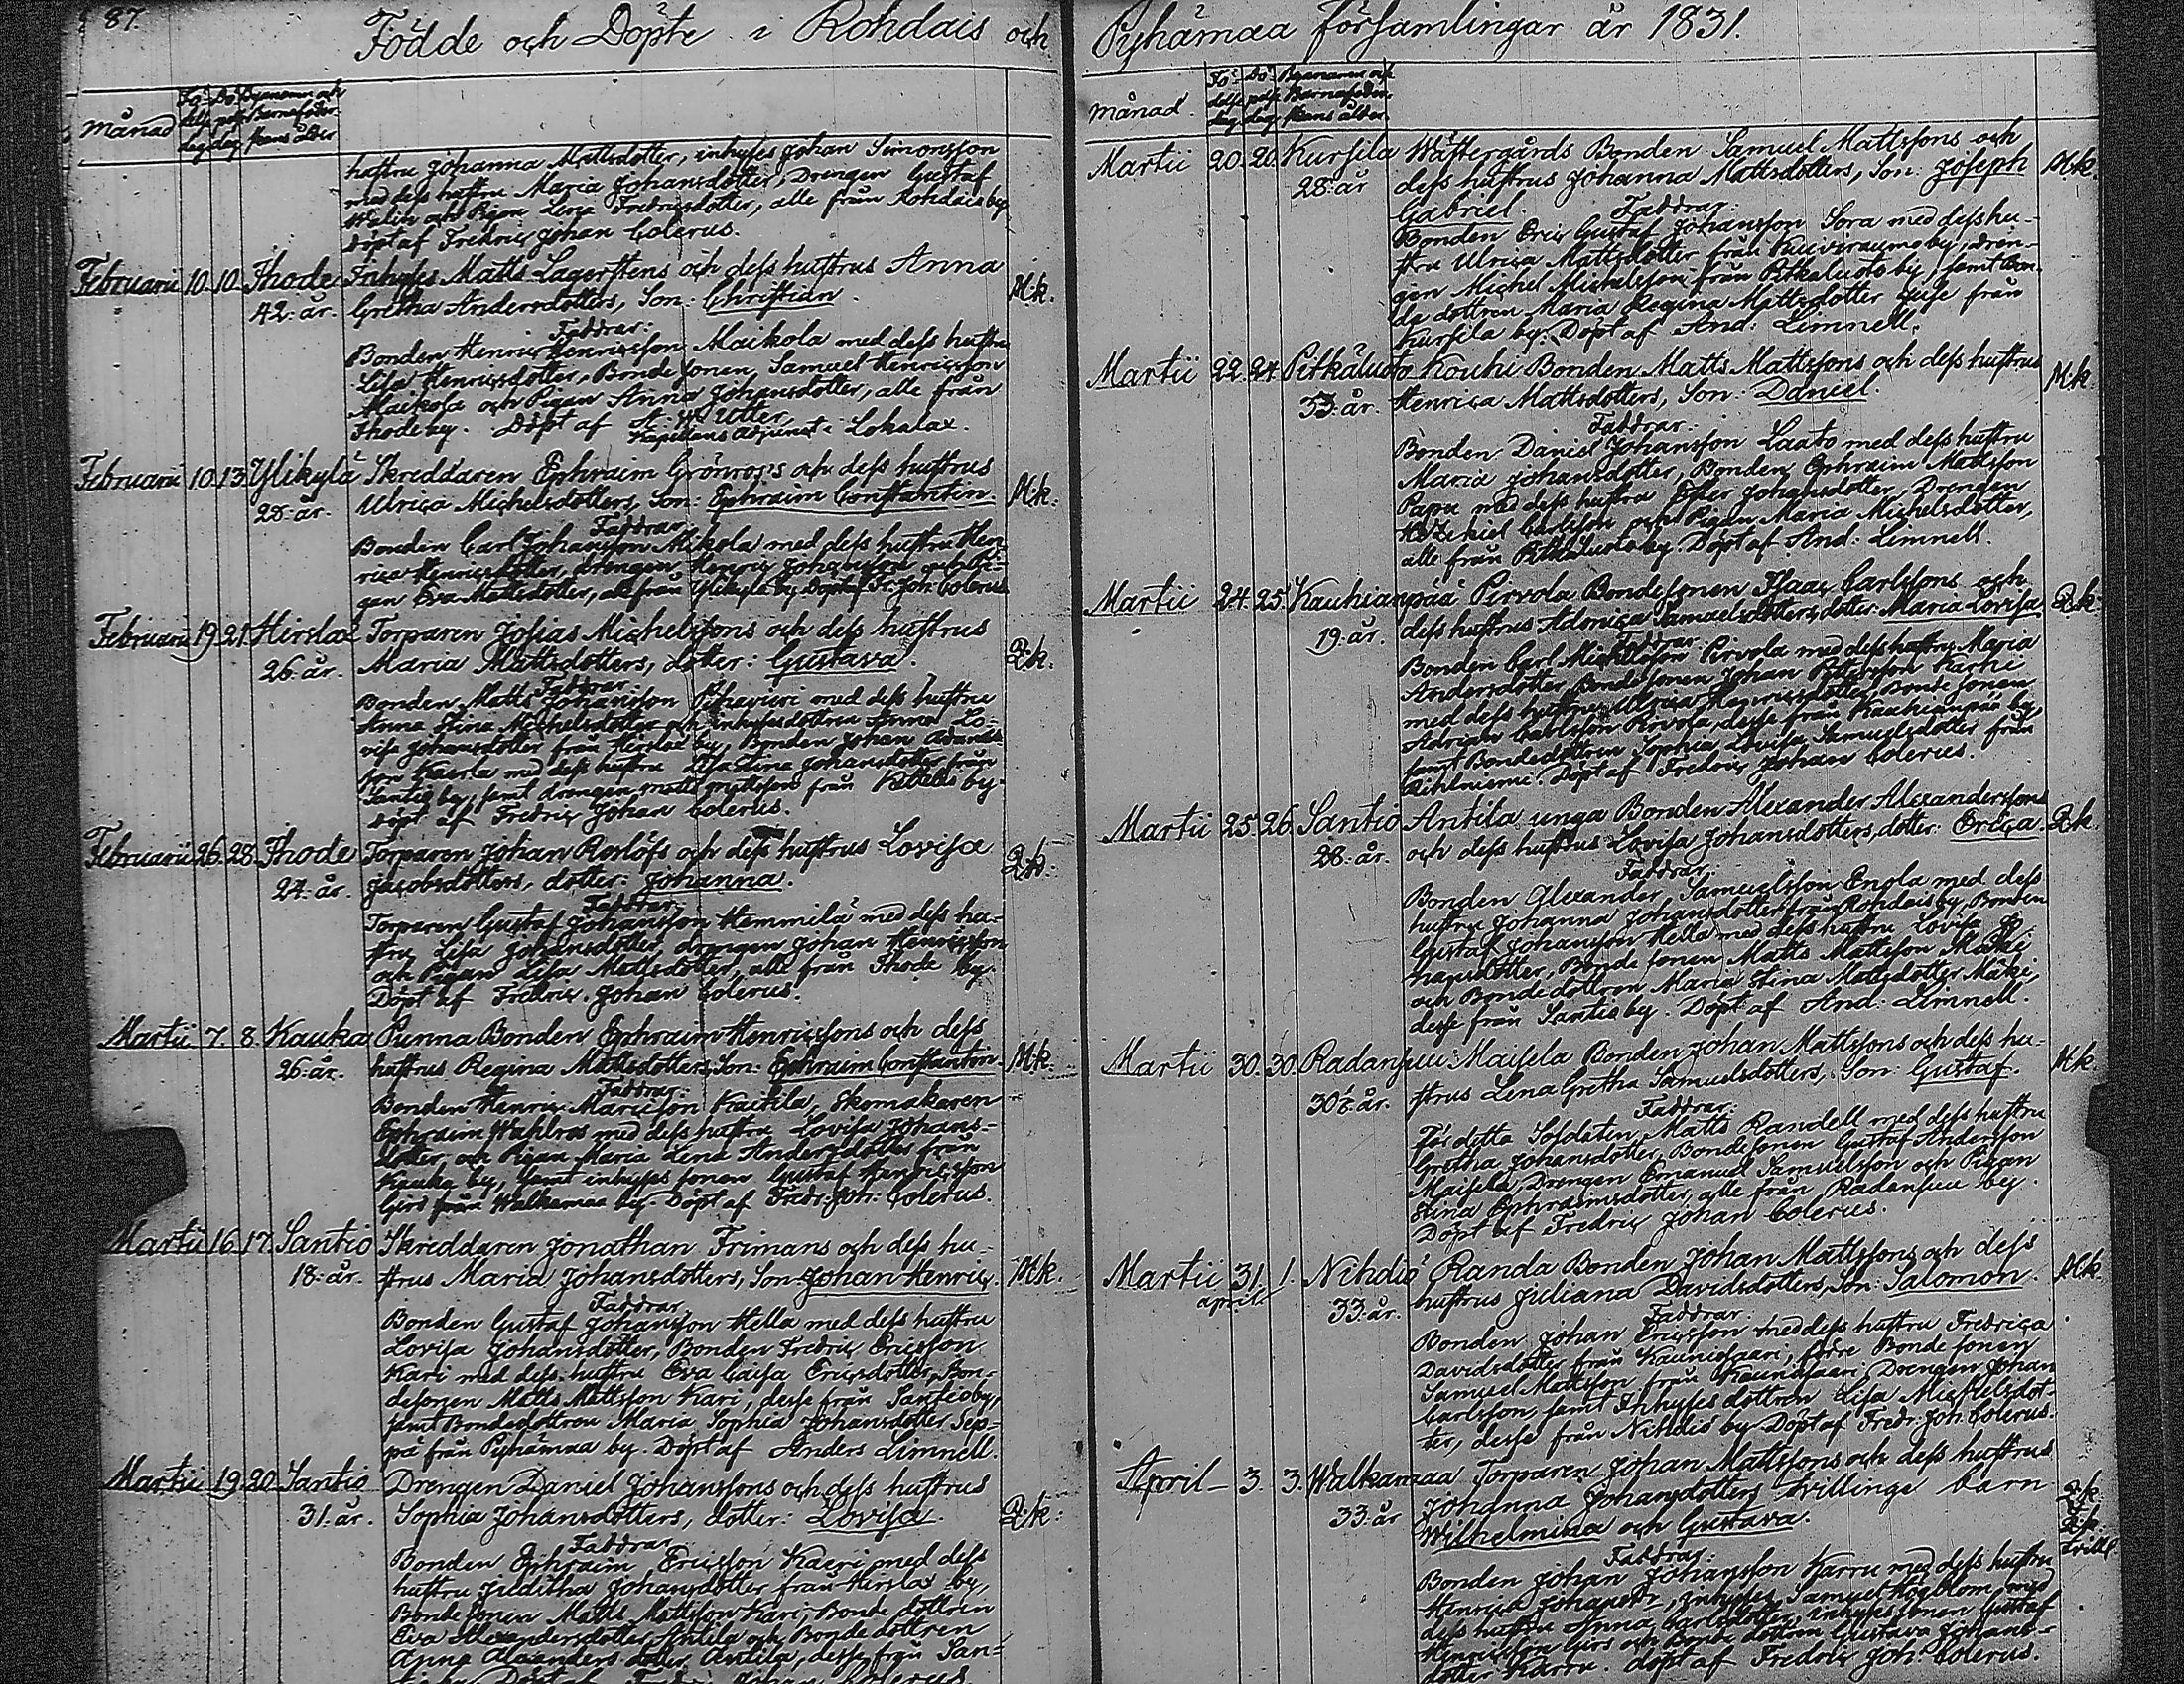 87.
Födde och Döpte i Rohdais och
månad
Fö- delse dag
Dö- pelse dag
Bynamn och Barnaföder- skans ålder
hustru Johanna Mattsdotter, inhyses Johan Simonsson
med dess hustru Maria Johansdotter, Drengen Gustaf
Welin och Pigan Lisa Fredricsdotter, alle från Rohdais by
döpt af Fredric Johan Colerus.
Februarii 10. 10. Ihode Inhyses Matts Lagerstens och dess hustrus Anna
42. år. Gretha Andersdotters, Son: Christian. M.k.
Faddrar:
Bonden Henric Henricsson Maikola med dess hustru
Lisa Henricsdotter, Bonde sonen Samuel Henricsson
Maikola och Pigan Anna Johansdotter, alle från
Ihode by. Döpt af A. W. Utter
Kapellans Adjunct i Lokalax.
Februarii 10. 13. Ylikylä Skreddaren Ephraim Grönroos's och dess hustrus
28. år. Ulrica Michelsdotters, Son: Ephraim Constantin. M.k.
Faddrar
Bonden Carl Johansson Mikola med dess hustru Hen-
rica Henricsdotter, drengen Henric Johansson och Pi-
gan Eva Mattsdotter, alle från Ylikylä by. Döpt af Fr. Joh. Colerus
Februarii 19. 21. Hirslax Torparen Josias Michelssons och dess hustrus
26. år. Maria Mattsdotters, dotter: Gustava. Q.k.
Faddrar:
Bonden Matts Johansson Pihavuori med dess hustru
Anna Stina Michelsdotter och inhysesdottren Anna Lo-
visa Johansdotter från Hirslax by, Bonden Johan Adams-
son Kaerla med dess hustru Justina Johansdotter från
Santio by, samt drengen Matts Mattsson från Kettelis by.
döpt af Fredric Johan Colerus.
Februarii 26. 28. Ihode Torparen Johan Roslöfs och dess hustrus Lovisa
24. år. Jacobsdotters, dotter: Johanna. Q.k.
Faddrar
Torparen Gustaf Johansson Hemmilä med dess hu-
stru Lisa Johansdotter, drengen Johan Henricsson
och Pigan Lisa Mattsdotter, alle från Ihode by.
Döpt af Fredric Johan Colerus.
Martii 7. 8. Kauka Punna Bonden Ephraim Henricssons och dess
26. år. hustrus Regina Mattsdotters, Son: Ephraim Constantin. M.k.
Faddrar:
Bonden Henric Maricson Kaitila, Skomakaren
Ephraim Wahlros med dess hustru Lovisa Johans-
dotter, och Pigan Maria Lena Andersdotter från
Kauka by, samt inhyses sonen Gustaf Henricsson
Girs från Walkamaa by. Döpt af Fredr: Joh: Colerus.
Martii 16. 17. Santio Skreddaren Jonathan Frimans och dess hu-
18. år. strus Maria Johansdotters, Son: Johan Henric. M.k.
Faddrar
Bonden Gustaf Johansson Hella med dess hustru
Lovisa Johansdotter, Bonden Fredric Ericsson
Kari med dess hustru Eva Caisa Ericsdotter, Bon-
desonen Matts Mattsson Kari, desse från Santio by,
samt Bondedottren Maria Sophia Johansdotter Sep-
pä från Pyhämaa by. Döpt af Anders Limnell.
Martii 19. 20. Santio Drengen Daniel Johanssons och dess hustrus
31. år. Sophia Johansdotters, dotter: Lovisa. Q.k.
Faddrar
Bonden Ephraim Ericsson Kaeri med dess
hustru Juditha Johansdotter från Hirslax by,
Bonde sonen Matts Mattsson Kari, Bonde dottren
Eva Alexandersdotter Antila och Bonde dottren
Anna Alexanders dotter Antila, desse från San-
tio by. Döpt af Fredric Johan Colerus.
Pyhämaa församlingar år 1831.
månad.
Fö- delse dag
Dö- pelse dag
Bynamn och Barnaföder- skans ålder.
Martii 20. 20. Kursila Wästergårds Bonden Samuel Mattssons och
28. år dess hustrus Johanna Mattsdotters, Son: Joseph M.k.
Gabriel. Faddrar:
Bonden Eric Gustaf Johansson Sora med dess hu-
stru Ulrica Mattsdotter från Kuivirauma by, dren-
gen Michel Michelsson från Pitkäluoto by, samt Bon-
de dottren Maria Regina Mattsdotter Juse från
Kursila by. Döpt af And: Limnell.
Martii 22. 24. Pitkäluoto Kouhi Bonden Matts Mattssons och dess hustrus
33. år. Henrica Mattsdotters, Son: Daniel. M.k.
Faddrar:
Bonden Daniel Johansson Laato med dess hustru
Maria Johansdotter, Bonden Ephraim Mattsson
Papu med dess hustru Ester Johansdotter, Drengen
Hezekiel Carlsson och Pigan Maria Michelsdotter,
alle från Pitkäluoto by. Döpt af And: Limnell.
Martii 24. 25. Kauhianpää Pirvola Bondesonen Isaac Carlssons och
19. år. dess hustrus Adorica Samuelsdotters, dotter Maria Lovisa. Q.k.
Faddrar
Bonden Carl Michelsson Pirvola med dess hustru Maria
Andersdotter, Bondesonen Johan Pettersson Karhi
med dess hustru Ulrica Henricsdotter, Bonde sonen
Adrian Carlsson Pirvola, desse från Kauhianpää by,
samt Bondedottren Sophia Lovisa Samuelsdotter från
Reihiniemi. Döpt af Fredric Johan Colerus.
Martii 25. 26. Santio Antila unga Bonden Alexander Alexanderssons
28. år. och dess hustrus Lovisa Johansdotters, dotter: Erica. Q.k.
Faddrar.
Bonden Alexander Samuelsson Engla med dess
hustru Johanna Johansdotter från Rohdais by, Bonden
Gustaf Johansson Hella med dess hustru Lovisa Jo-
hansdotter, Bonde sonen Matts Mattsson Mäki
och Bonde dottren Maria Stina Mattsdotter Mäki,
desse från Santio by. Döpt af And: Limnell.
Martii 30. 30. Radansuu Maisela Bonden Johan Mattssons och dess hu-
30½ år. strus Lena Gretha Samuelsdotters, Son: Gustaf. M.k.
Faddrar:
För detta Soldaten Matts Randell med dess hustru
Gretha Johansdotter, Bondesonen Gustaf Andersson
Maisela, Drengen Emanuel Samuelsson och Pigan
Stina Ephraimsdotter, alle från Radansuu by.
Döpt af Fredric Johan Colerus.
Martii 31. 1. Nihdiö Randa Bonden Johan Mattssons och dess
april. 33. år. hustrus Juliana Davidsdotters, Son: Salomon. M.k.
Faddrar:
Bonden Johan Ericsson med dess hustru Fredrica
Davidsdotter från Kaunissaari, förre Bonde sonen
Samuel Mattsson från Kaunissaari, Drengen Johan
Carlsson, samt Inhyses dottren Lisa Michelsdot-
ter, desse från Nihdiö by. Döpt af Fredr: Joh: Colerus.
April 3. 3. Walkamaa Torparen Johan Mattssons och dess hustrus
33. år Johanna Johansdotters tvillinge barn Q.k.
Wilhelmina och Gustava. Q.k. tvill.
Faddrar:
Bonden Johan Johansson Karru med dess hustru
Henrica Johansdr, inhyses Samuel Högblom med
dess hustru Anna Carlsdotter, inhyses sonen Gustaf
Henricsson Girs och Bonde dottren Gustava Johans-
dotter Karru. döpt af Fredric Joh: Colerus.